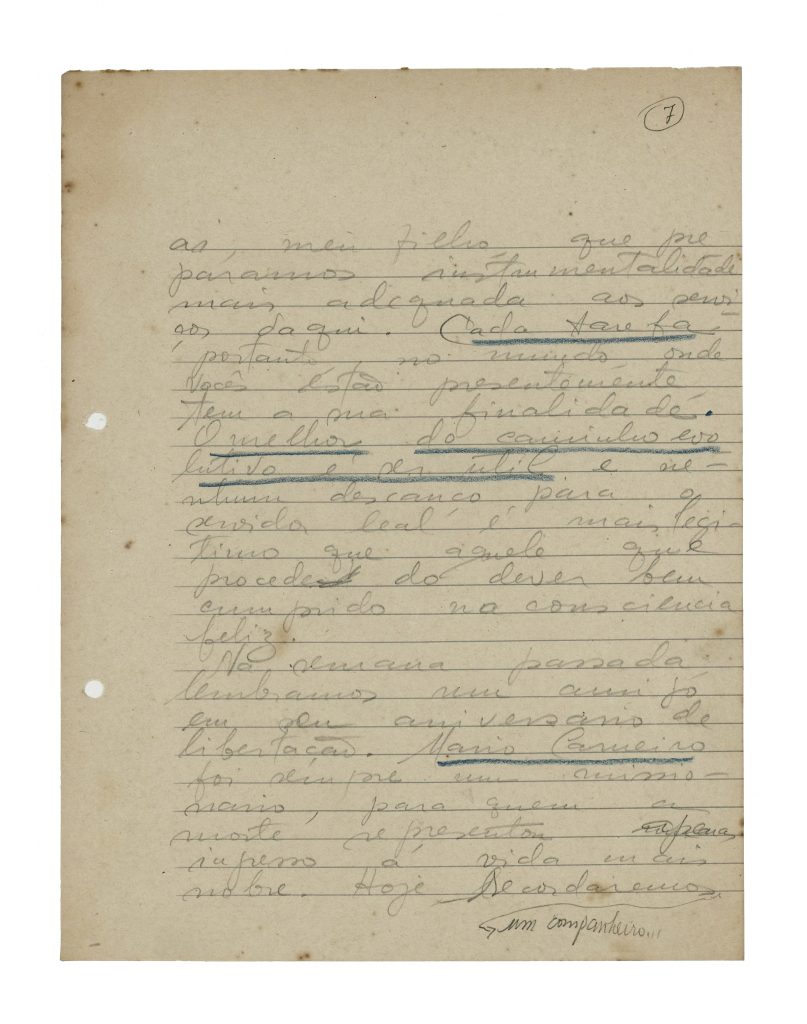 7
as, meu filho, que pre
paramos instrumentalidade
mais adequada aos servi
ços daqui. Cada tarefa
portanto, no mundo onde
vocês estão presentemente
tem a sua finalidade.
O melhor do caminho evo
lutivo é ser util e ne-
nhum descanço para o
servidor leal é mais legi-
timo que aquele que
procede do dever bem
cumprido na consciencia
feliz.
Na semana passada
lembramos um amigo
em seu aniversario de
libertação. Mario Carneiro
foi sempre um missio-
nario, para quem a
morte representou apenas
ingresso á vida mais
nobre. Hoje, Recordaremos
um companheiro...